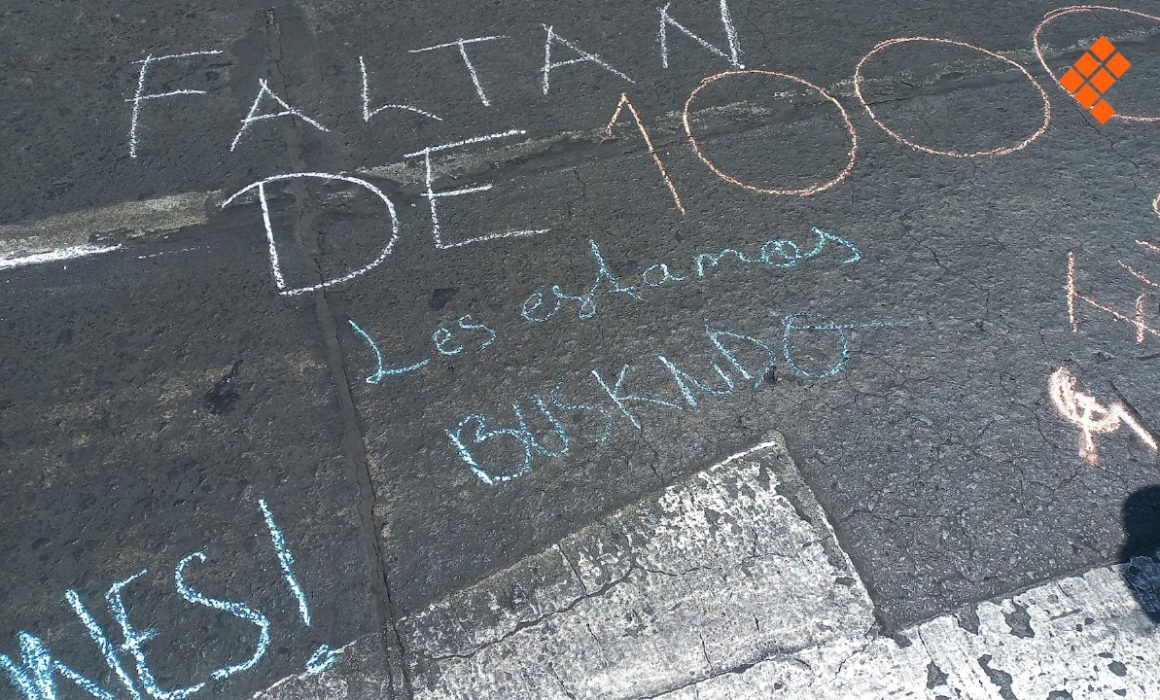 FALTAN
DE 1000
Les estamos
BUSKNDO
NES!